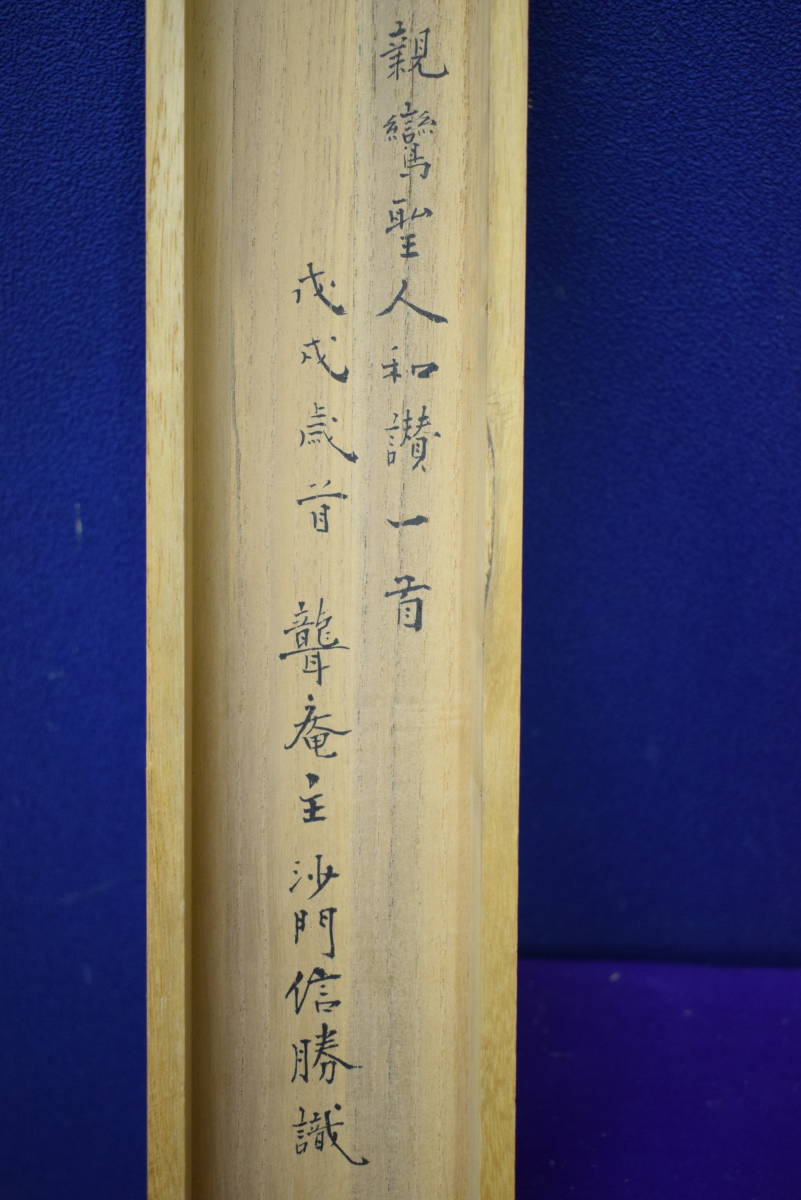 親鸞聖人和讃一首
戊戌歳首 聾庵主沙門信勝識